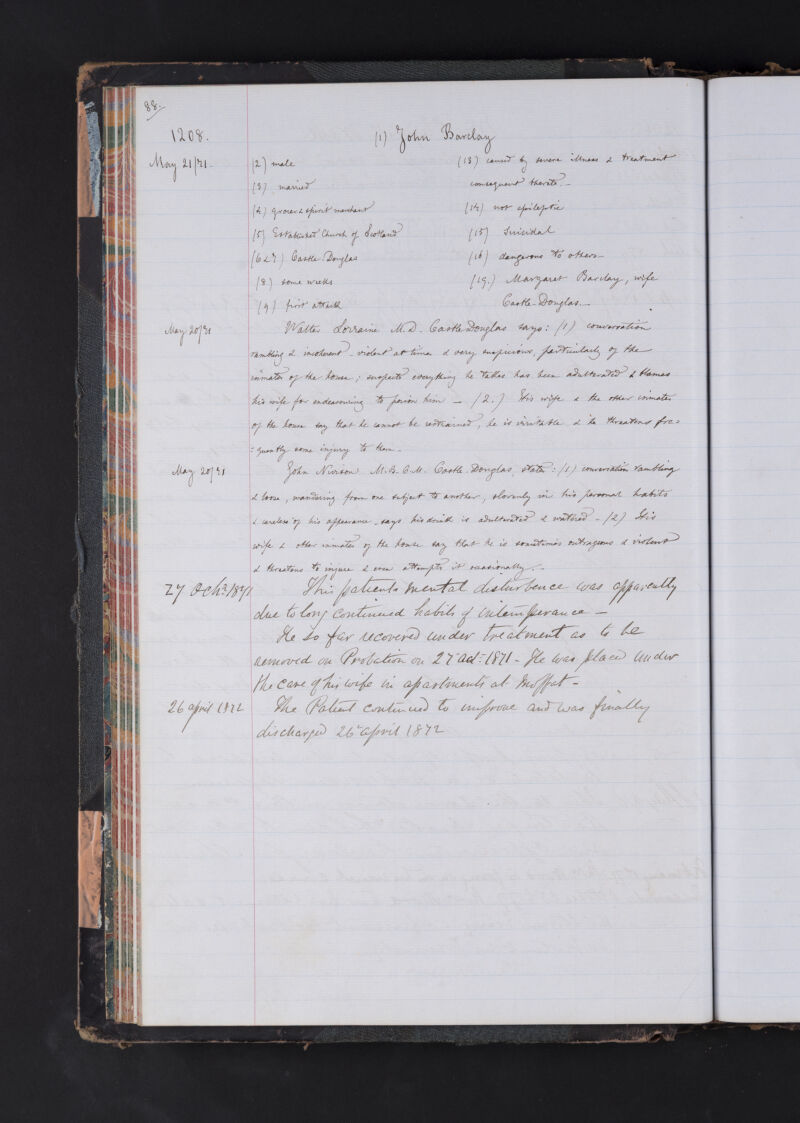 88.
1208. (1) John Barclay
May 21/71. (2) male (13) caused by severe illness & treatment
(3) married consequent thereto.—
(4) grocer & spirit merchant (14) not epileptic
(5) Established Church of Scotland (15) Suicidal
(6 & 7) Castle-Douglas (16) dangerous to others
(8) some weeks (19.) Margaret Barclay, wife
(9) first attack Castle-Douglas.—
May 20/71 Walter Lorraine M.D. Castle-Douglas says: (1) conversation
rambling & incoherent. violent at times & very suspicious, particularly of the
inmates of the house; suspects everything he takes has been adulterated & blames
his wife for endeavouring to poison him — (2.) His wife & the other inmates
of the house say that he cannot be restrained, he is irritable & he threatens fre=
=quently some injury to them.
May 20/71 John M.B. C.M. Castle-Douglas, states: (1) conversation rambling
& loose, wandering from one subject to another, slovenly in his personal habits
& careless of his appearance. says his drink is adulterated & watered – (2) His
wife & other inmates of the house say that he is sometimes outrageous & violent
& threatens to injure & even attempts it occasionally.—
27 Octr. 1871 This patients mental disturbence was apparently
due to long continued habits of intemperance —
He so far recovered under treatment as to be
removed on Probation on 27 Oct: 1871 - He was placed under
the care of his wife in apartments at Moffat -
26 april 1872 The Patient continued to improve and was finally
discharged 26 april 1872